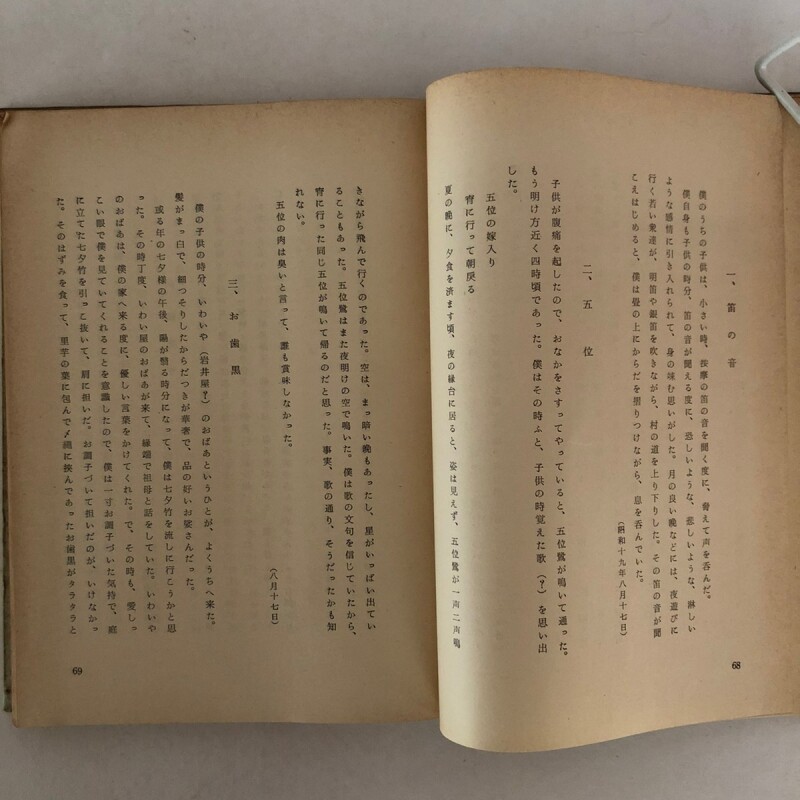 一、笛の音
僕のうちの子供は、小さい時、按摩の笛の音を聞く度に、脅えて声を呑んだ。
僕自身も子供の時分、笛の音が聞える度に、恐しいような、悲しいような、淋しい
ような感情に引き入れられて、身の竦む思いがした。月の良い晩などには、夜遊びに
行く若い衆達が、明笛や銀笛を吹きながら、村の道を上り下りした。その笛の音が聞
こえはじめると、僕は畳の上にからだを摺りつけながら、息を呑んでいた。
(昭和十九年八月十七日)
二、五位
子供が腹痛を起したので、おなかをさすってやっていると、五位鷺が鳴いて通った。
もう明け方近く四時頃であった。僕はその時ふと、子供の時覚えた歌(?)を思い出
した。
五位の嫁入り
宵に行って朝戻る
夏の晩に、夕食を済ます頃、夜の縁台に居ると、姿は見えず、五位鷺が一声二声鳴
68
きながら飛んで行くのであった。空は、まっ暗い晩もあったし、星がいっぱい出てい
ることもあった。五位鷺はまた夜明けの空で鳴いた。僕は歌の文句を信じていたから、
宵に行った同じ五位が鳴いて帰るのだと思った。事実、歌の通り、そうだったかも知
れない。
五位の肉は臭いと言って、誰も賞味しなかった。
(八月十七日)
三、お歯黒
僕の子供の時分、いわいや(岩井屋?)のおばあというひとが、よくうちへ来た。
髪がまっ白で、細っそりしたからだつきが華奢で、品の好いお婆さんだった。
或る年の七夕様の午後、陽が翳る時分になって、僕は七夕竹を流しに行こうかと思
った。その時丁度、いわい屋のおばあが来て、縁端で祖母と話をしていた。いわいや
のおばあは、僕の家へ来る度に、優しい言葉をかけてくれた。で、その時も、愛しっ
こい眼で僕を見ていてくれることを意識したので、僕は一寸お調子づいた気持で、庭
に立てた七夕竹を引っこ抜いて、肩に担いだ。お調子づいて担いだのが、いけなかっ
た。そのはずみを食って、里芋の葉に包んで〆縄に挟んであったお歯黒がタラタラと
69